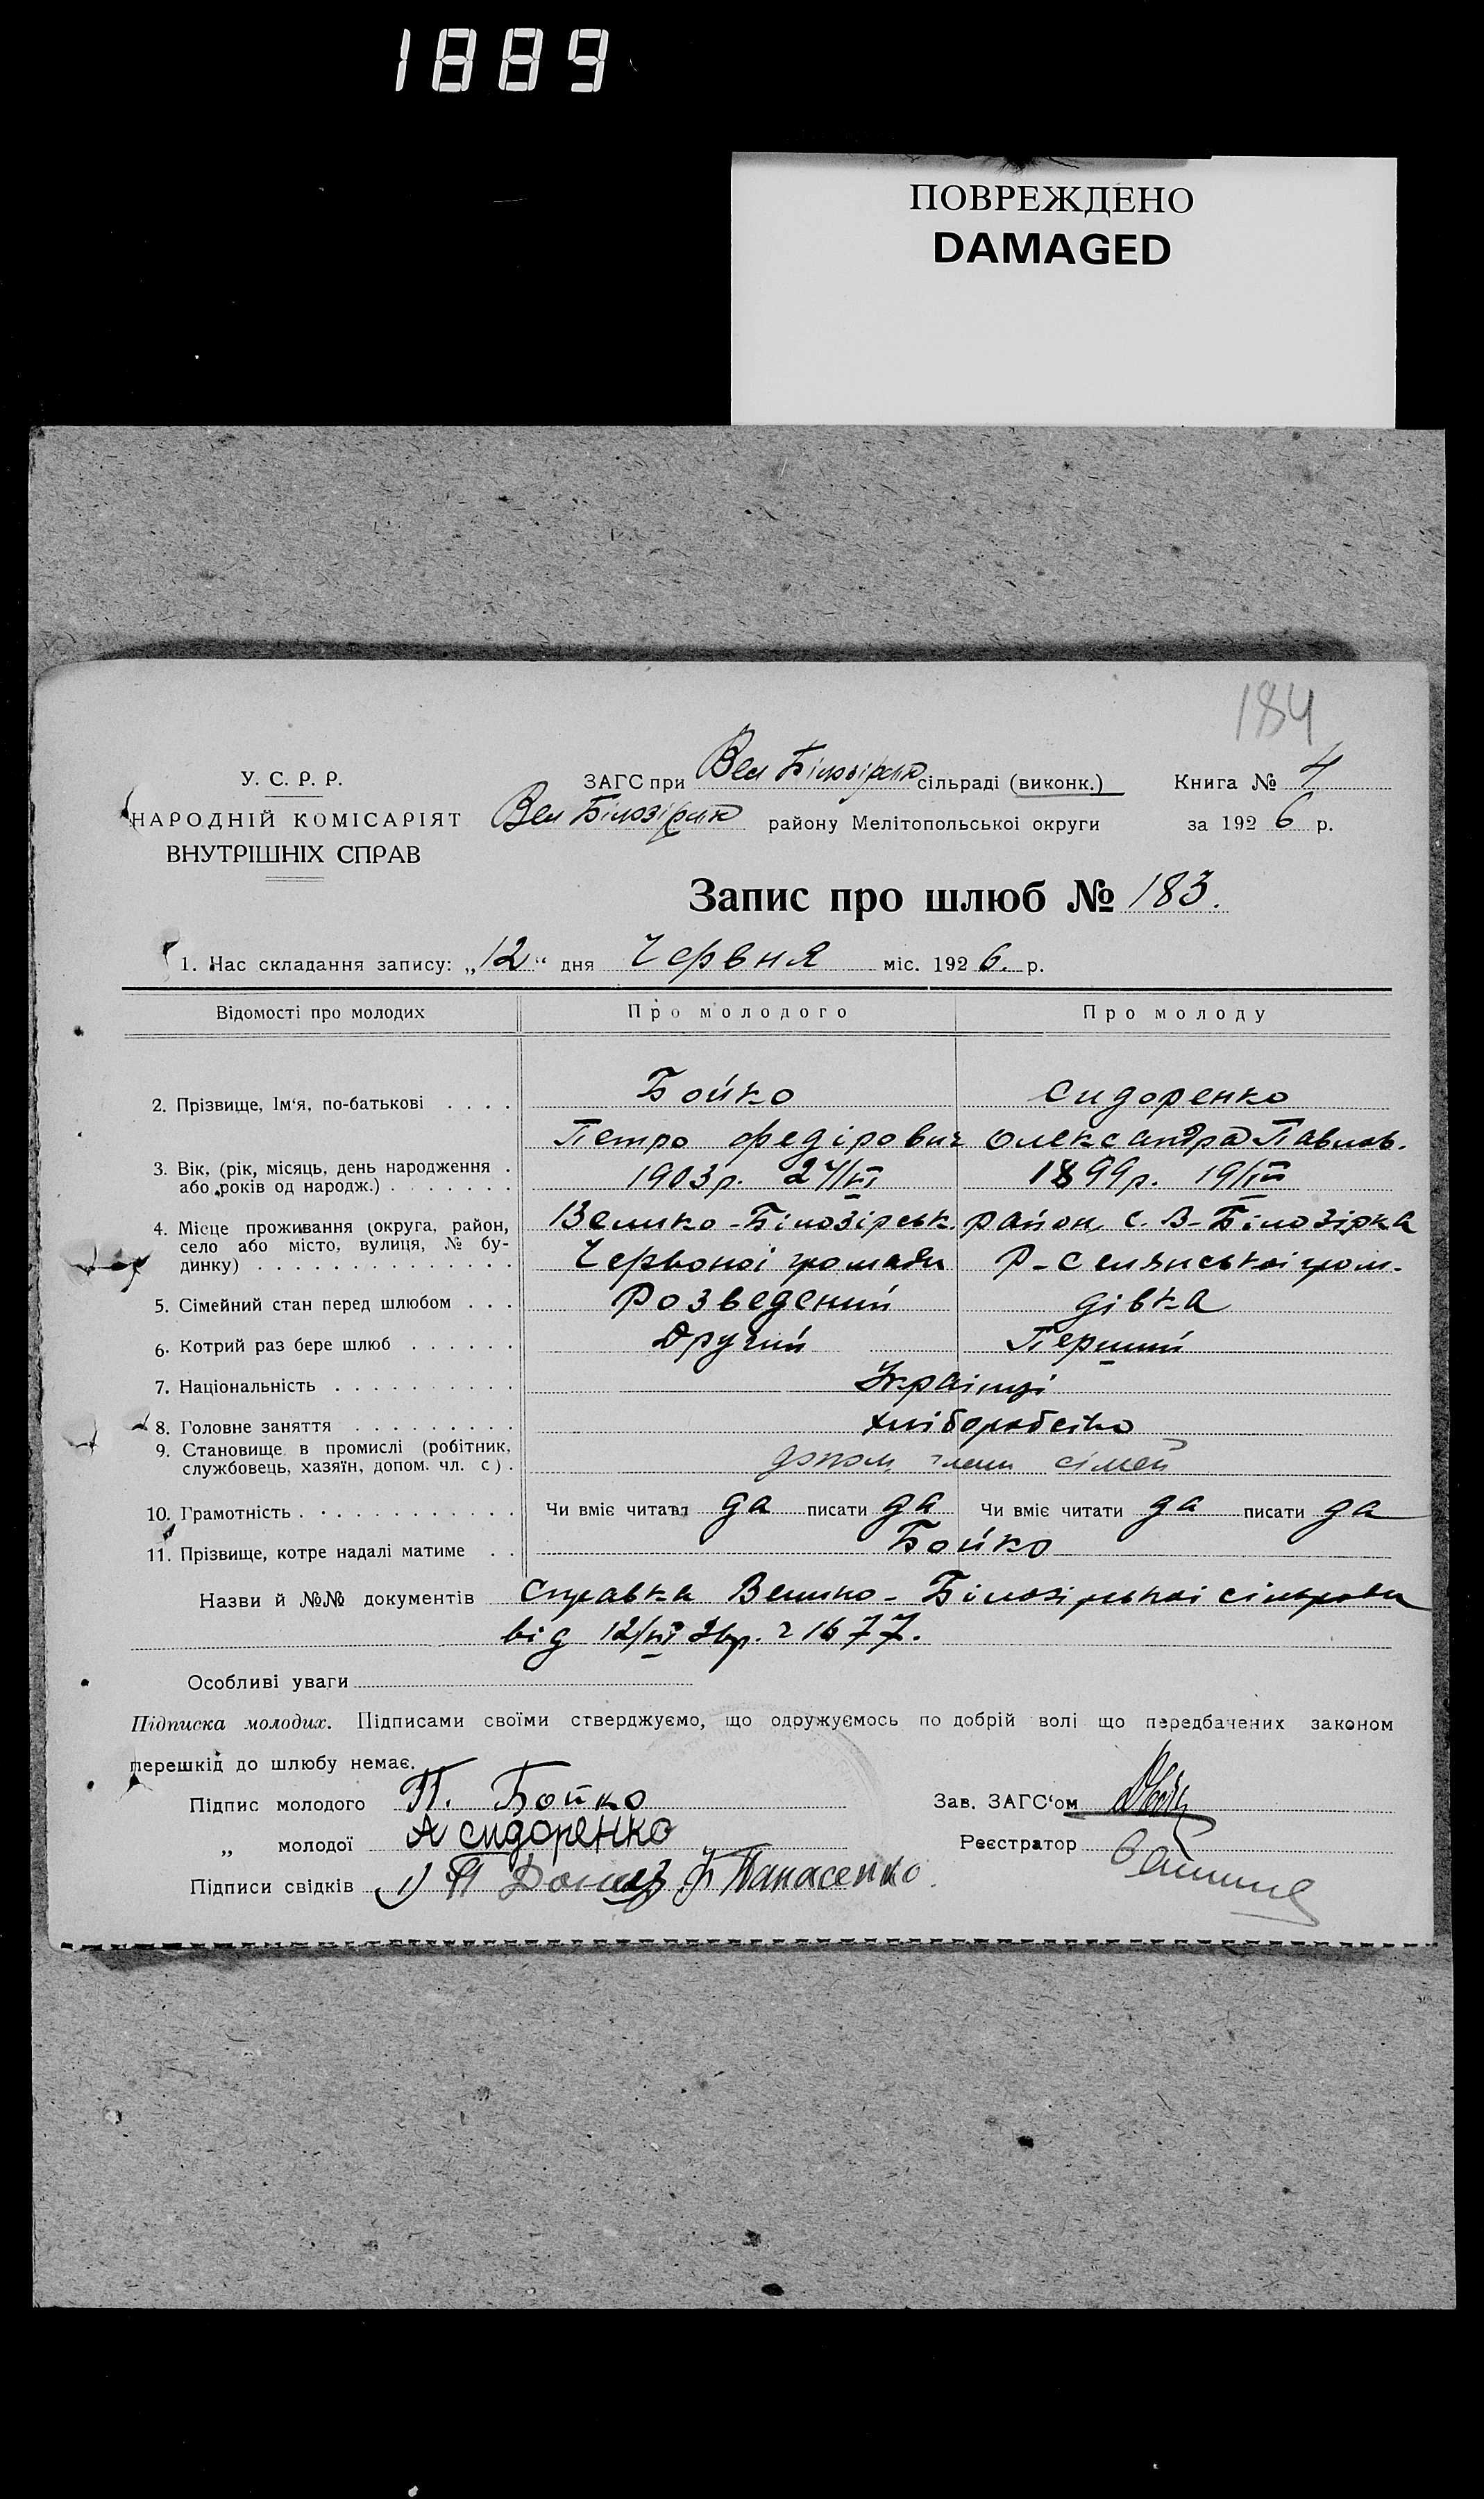 1889
ПОВРЕЖДЕНО
DAMAGED
184
У. С. Р. Р.
НАРОДНІЙ КОМІСАРІЯТ
ВНУТРІШНІХ СПРАВ
ЗАГС при Вел Білозірск сільраді (виконк.)
Вел Білозірск району Мелітопольської округи
Книга № 4
за 1926 р.
Запис про шлюб № 183.
1. Час складання запису: „12“ дня Червня міс. 1926. р.
Відомості про молодих Про молодого Про молоду
2. Прізвище, Ім‘я, по-батькові . . . . Бойко Сидоренко
Петро Федірович Олександра Павлов.
3. Вік, (рік, місяць, день народження . 1903 р. 24/VI 1899 р. 19/III
або років од народж.) . . . . . . .
4. Місце проживання (округа, район, Велико-Білозірськ район, с. В-Білозірка
село або місто, вулиця, № бу-
динку) . . . . . . . . . . . . . . Червоної громади Р-Селянської гром.
5. Сімейний стан перед шлюбом . . . Розведений дівка
6. Котрий раз бере шлюб . . . . . . Другий Перший
7. Національність . . . . . . . . . . Українці
8. Головне заняття . . . . . . . . . хліборобство
9. Становище в промислі (робітник,
службовець, хазяїн, допом. чл. с) . допом, члени сімей
10. Грамотність . . . . . . . . . . . . Чи вміє читати да писати да Чи вміє читати да писати да
11. Прізвище, котре надалі матиме . . Бойко
Назви й №№ документів Справка Велико-Білозірської сільради
від 12/VI 26р. 1677.
Особливі уваги
Підписка молодих. Підписами своїми стверджуємо, що одружуємось по добрій волі що передбачених законом
перешкід до шлюбу немає.
Підпис молодого П. Бойко Зав. ЗАГС‘ом
„ молодої А Сидоренко Реєстратор
Підписи свідків 1) П Панасенко